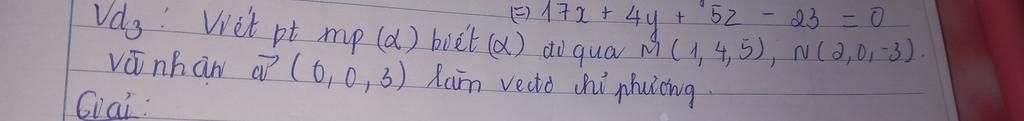 (=) 17x + 4y + 5z - 23 = 0
Vd3: Viết pt mp (α) biết (α) đi qua M (1, 4, 5), N (2, 0, -3).
và nhận a⃗ (0, 0, 3) làm vectơ chỉ phương.
Giải: